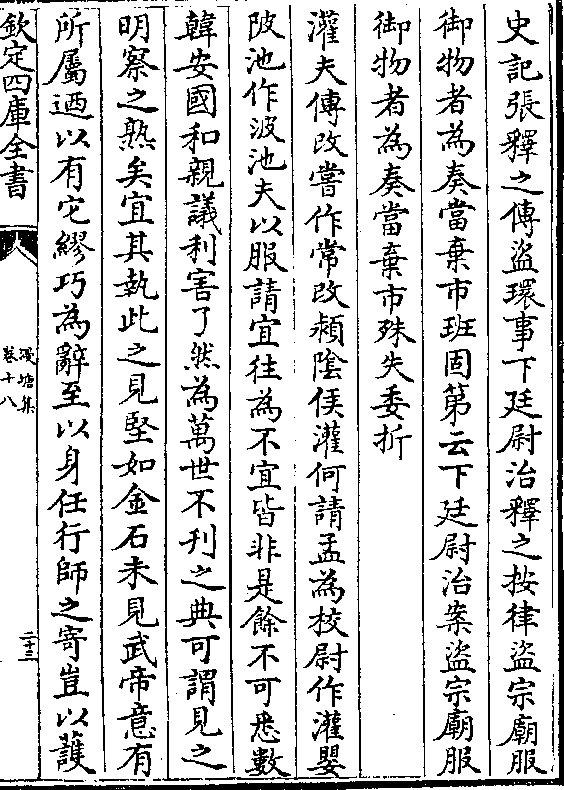 史記張釋之傳盜環事下廷尉治釋之按律盜宗廟服
御物者為奏當棄市班固第云下廷尉治案盜宗廟服
御物者為奏當棄市殊失委折
灌夫傳改嘗作常改潁陰侯灌何請孟為校尉作灌嬰
陂池作波池夫以服請宜往為不宜皆非是餘不可悉數
韓安國和親議利害了然為萬世不刋之典可謂見之
明察之熟矣宜其執此之見堅如金石未見武帝意有
所屬迺以有它繆巧為辭至以身任行師之寄豈以護
欽定四庫全書
漫塘集
卷十八
二十三